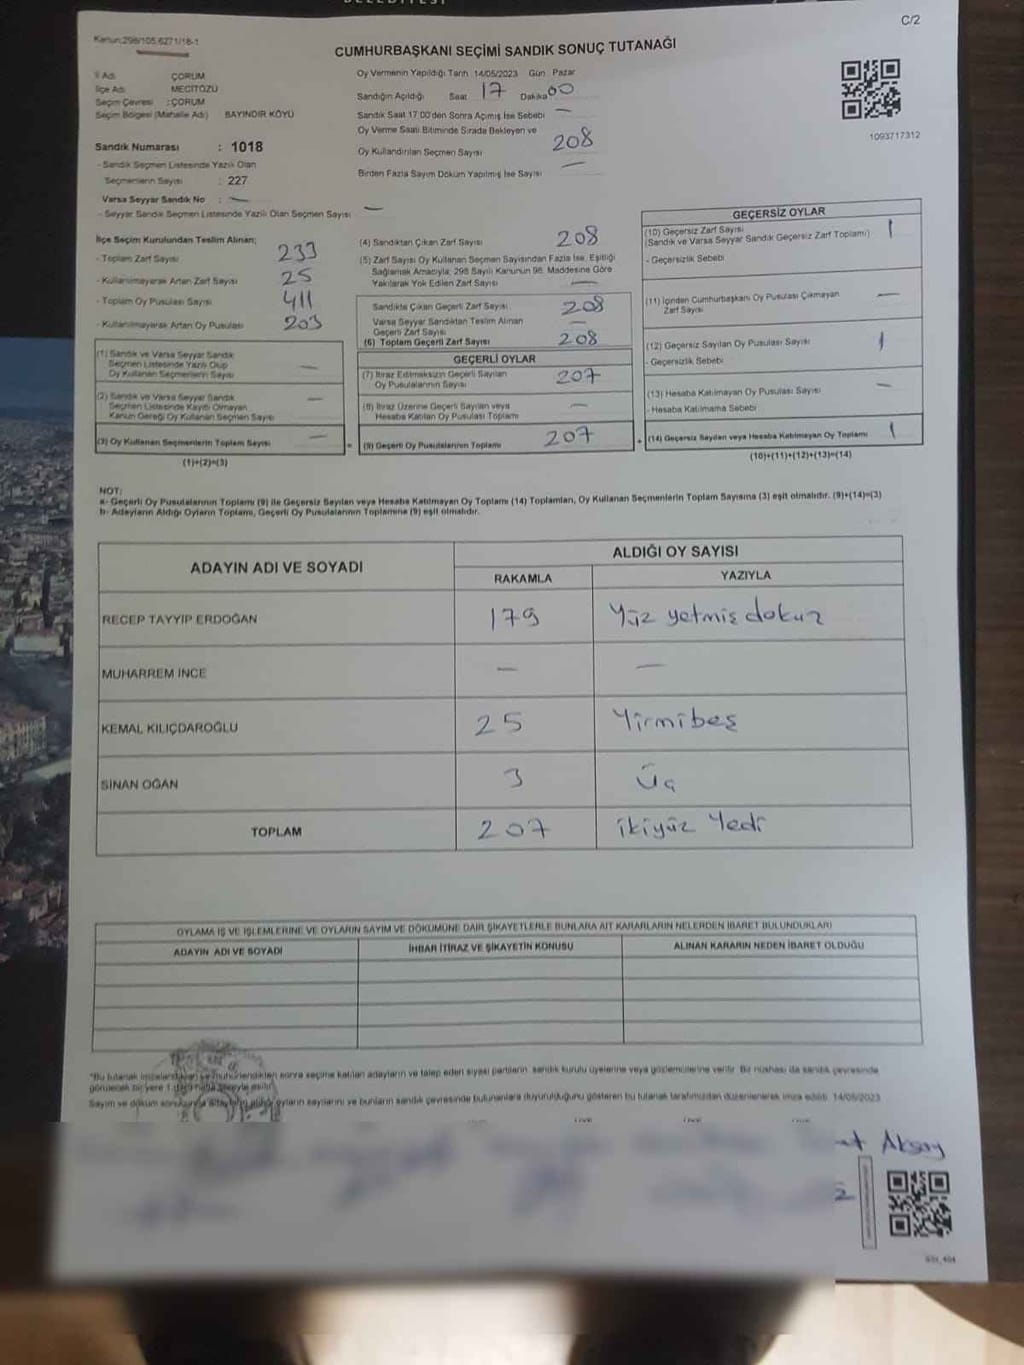 C/2
Kanun:298/105,6271/18-1
CUMHURBAŞKANI SEÇİMİ SANDIK SONUÇ TUTANAĞI
İl Adı ÇORUM
İlçe Adı MECİTÖZÜ
Seçim Çevresi : ÇORUM
Seçim Bölgesi (Mahalle Adı) BAYINDIR KÖYÜ
Oy Vermenin Yapıldığı Tarih 14/05/2023 Gün Pazar
Sandığın Açıldığı Saat 17 Dakika 00
Sandık Saat 17.00'den Sonra Açımış İse Sebebi —
Oy Verme Saati Bitiminde Sırada Bekleyen ve
Oy Kullandırılan Seçmen Sayısı 208
Birden Fazla Sayım Döküm Yapılmış İse Sayısı —
1093717312
Sandık Numarası : 1018
- Sandık Seçmen Listesinde Yazılı Olan
Seçmenlerin Sayısı : 227
Varsa Seyyar Sandık No : —
- Seyyar Sandık Seçmen Listesinde Yazılı Olan Seçmen Sayısı —
İlçe Seçim Kurulundan Teslim Alınan;
- Toplam Zarf Sayısı 233
- Kullanılmayarak Artan Zarf Sayısı 25
- Toplam Oy Pusulası Sayısı 411
- Kullanılmayarak Artan Oy Pusulası 203
(1) Sandık ve Varsa Seyyar Sandık
Seçmen Listesinde Yazılı Olup
Oy Kullanan Seçmenlerin Sayısı —
(2) Sandık ve Varsa Seyyar Sandık
Seçmen Listesinde Kayıtlı Olmayan
Kanun Gereği Oy Kullanan Seçmen Sayısı —
(3) Oy Kullanan Seçmenlerin Toplam Sayısı —
(1)+(2)=(3)
(4) Sandıktan Çıkan Zarf Sayısı 208
(5) Zarf Sayısı Oy Kullanan Seçmen Sayısından Fazla İse, Eşitliği
Sağlamak Amacıyla, 298 Sayılı Kanunun 98. Maddesine Göre
Yakılarak Yok Edilen Zarf Sayısı —
Sandıkta Çıkan Geçerli Zarf Sayısı 208
Varsa Seyyar Sandıktan Teslim Alınan
Geçerli Zarf Sayısı —
(6) Toplam Geçerli Zarf Sayısı 208
GEÇERLİ OYLAR
(7) İtiraz Edilmeksizin Geçerli Sayılan
Oy Pusulalarının Sayısı 207
(8) İtiraz Üzerine Geçerli Sayılan veya
Hesaba Katılan Oy Pusulası Toplamı —
= (9) Geçerli Oy Pusulalarının Toplamı 207
GEÇERSİZ OYLAR
(10) Geçersiz Zarf Sayısı
(Sandık ve Varsa Seyyar Sandık Geçersiz Zarf Toplamı) 1
- Geçersizlik Sebebi
(11) İçinden Cumhurbaşkanı Oy Pusulası Çıkmayan
Zarf Sayısı —
(12) Geçersiz Sayılan Oy Pusulası Sayısı 1
- Geçersizlik Sebebi
(13) Hesaba Katılmayan Oy Pusulası Sayısı —
- Hesaba Katılmama Sebebi
+ (14) Geçersiz Sayılan veya Hesaba Katılmayan Oy Toplamı 1
(10)+(11)+(12)+(13)=(14)
NOT:
a- Geçerli Oy Pusulalarının Toplamı (9) ile Geçersiz Sayılan veya Hesaba Katılmayan Oy Toplamı (14) Toplamları, Oy Kullanan Seçmenlerin Toplam Sayısına (3) eşit olmalıdır. (9)+(14)=(3)
b- Adayların Aldığı Oyların Toplamı, Geçerli Oy Pusulalarının Toplamına (9) eşit olmalıdır.
ADAYIN ADI VE SOYADI ALDIĞI OY SAYISI
RAKAMLA YAZIYLA
RECEP TAYYİP ERDOĞAN 179 Yüz yetmiş dokuz
MUHARREM İNCE — —
KEMAL KILIÇDAROĞLU 25 Yirmibeş
SİNAN OĞAN 3 Üç
TOPLAM 207 ikiyüz Yedi
OYLAMA İŞ VE İŞLEMLERİNE VE OYLARIN SAYIM VE DÖKÜMÜNE DAİR ŞİKAYETLERLE BUNLARA AİT KARARLARIN NELERDEN İBARET BULUNDUKLARI
ADAYIN ADI VE SOYADI İHBAR İTİRAZ VE ŞİKAYETİN KONUSU ALINAN KARARIN NEDEN İBARET OLDUĞU
*Bu tutanak imzalandıktan ve mühürlendikten sonra seçime katılan adayların ve talep eden siyasi partilerin sandık kurulu üyelerine veya gözlemcilerine verilir. Bir nüshası da sandık çevresinde
görülecek bir yere 1 hafta süreyle asılır.
Sayım ve döküm sonucunda adayların aldığı oyların sayılarını ve bunların sandık çevresinde bulunanlara duyurulduğunu gösteren bu tutanak tarafımızdan düzenlenerek imza edildi. 14/05/2023
Aksoy